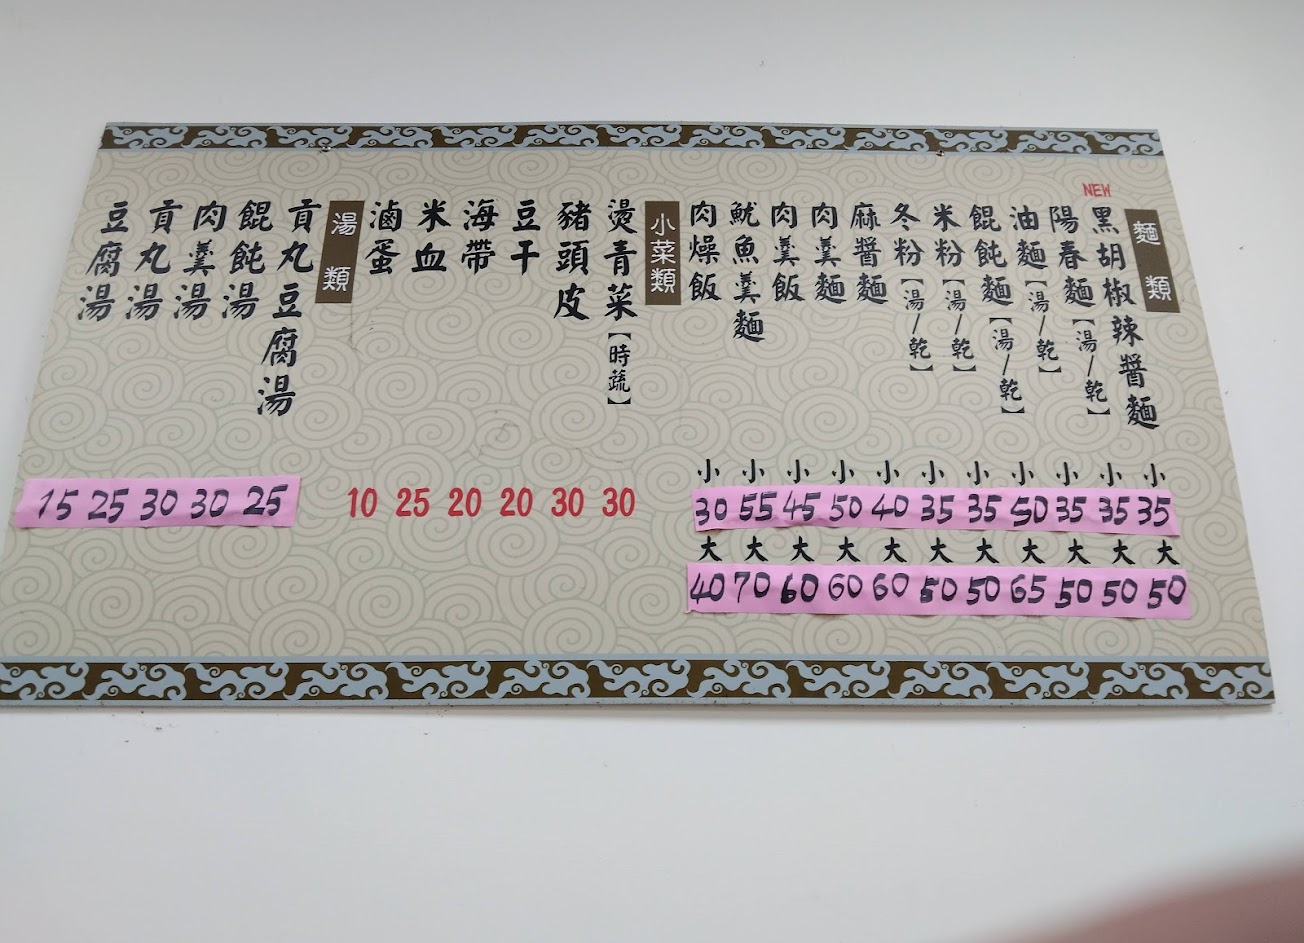 麵類
NEW
黑胡椒辣醬麵 小 35 大 50
陽春麵【湯/乾】 小 35 大 50
油麵【湯/乾】 小 35 大 50
餛飩麵【湯/乾】 小 50 大 65
米粉【湯/乾】 小 35 大 50
冬粉【湯/乾】 小 35 大 50
麻醬麵 小 40 大 60
肉羹麵 小 50 大 60
肉羹飯 小 45 大 60
魷魚羹麵 小 55 大 70
肉燥飯 小 30 大 40
小菜類
燙青菜【時蔬】 30
豬頭皮 30
豆干 20
海帶 20
米血 25
滷蛋 10
湯類
貢丸豆腐湯 25
餛飩湯 30
肉羹湯 30
貢丸湯 25
豆腐湯 15